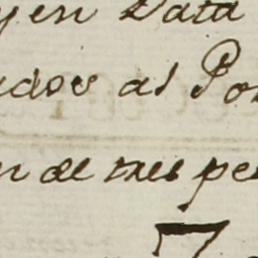 yen Data
ados al Po
n de tres pe
7